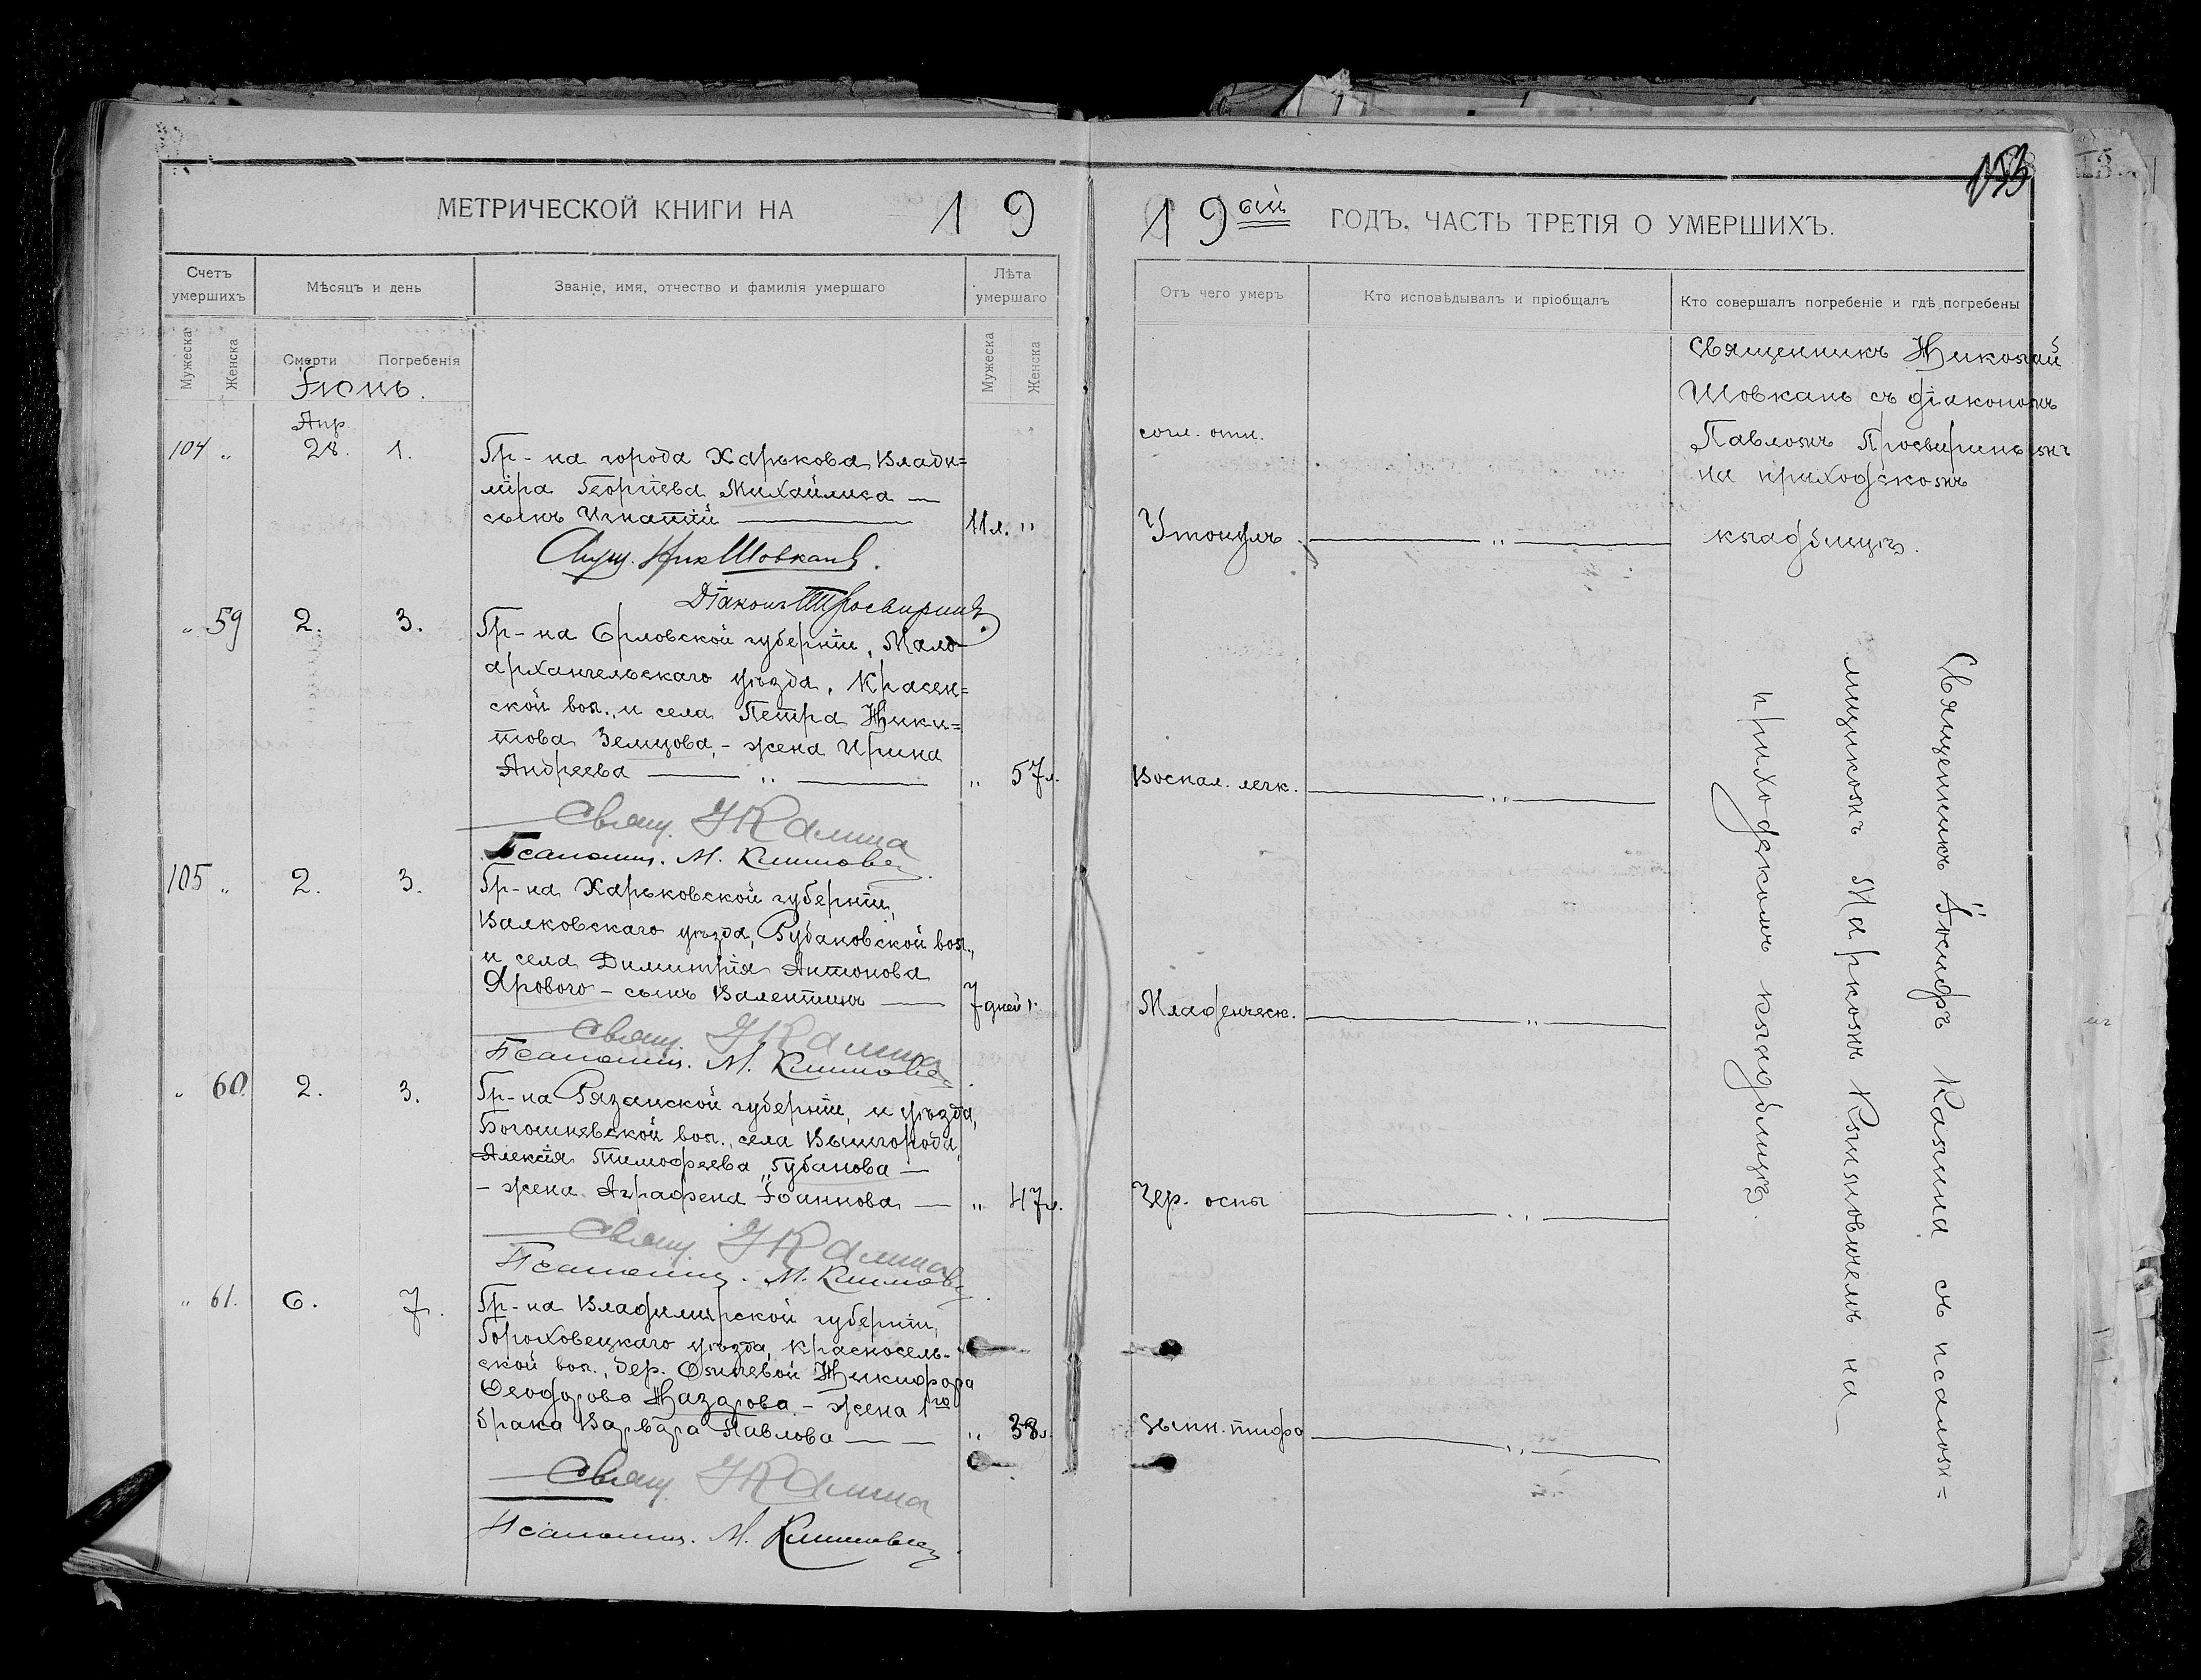 МЕТРИЧЕСКОЙ КНИГИ НА 19
19ый ГОДЪ, ЧАСТЬ ТРЕТІЯ О УМЕРШИХЪ.
153
Счетъ умершихъ
Мѣсяцъ и день
Званіе, имя, отчество и фамилія умершаго
Лѣта умершаго
Отъ чего умеръ
Кто исповѣдывалъ и пріобщалъ
Кто совершалъ погребеніе и гдѣ погребены
Мужеска
Женска
Смерти
Погребенія
Мужеска
Женска
Іюнь.
104 „
Апр
28. 1.
Гр-на города Харькова Влади=
міра Георгіева Михайлика —
сынъ Игнатій —
11 л. "
согл. отн.
Утонулъ. — „ —
Священникъ Николай
Шовкань съ діакономъ
Павломъ Просвиринымъ
на приходскомъ
кладбищѣ.
Свящ. Ник Шовкань.
Діаконъ П Просвиринъ
„ 59
2. 3.
Гр-на Орловской губерніи, Мало-
архангельскаго уѣзда, Красен=
ской вол., и села Петра Ники=
това Земцова, - жена Ирина
Андреева — „ —
„ 57 л.
Воспал. легк. — „ —
Свящ. І Калина
Псаломщ. М. Климовичъ
105 „
2. 3.
Гр-на Харьковской губерніи,
Валковскаго уѣзда, Рубановской вол.,
и села Димитрія Антонова
Ярового - сынъ Валентинъ —
7 дней "
Младенческ. — „ —
Свящ. І Калина
Псаломщ. М. Климовичъ
„ 60.
2. 3.
Гр-на Рязанской губерніи, и уѣзда,
вол., села Вышгорода,
Алексія Тимофеева Губанова —
- жена Аграфена Іоаннова —
„ 47 л.
Чер. оспы — „ —
Свящ. І Калина
Псаломщ. М. Климовичъ
„ 61.
6. 7.
Гр-на Владимірской губерніи,
Гороховецкаго уѣзда, Красносель-
ской вол., дер. Никифора
Ѳеодорова Назарова - жена 1го
брака Варвара Павлова — —
„ 38 л.
сыпн. тифа — „ —
Свящ. І Калина
Псаломщ. М. Климовичъ
Священникъ Іосифъ Калина съ псалом=
щикомъ Маркомъ Климовичемъ на
приходскомъ кладбищѣ.